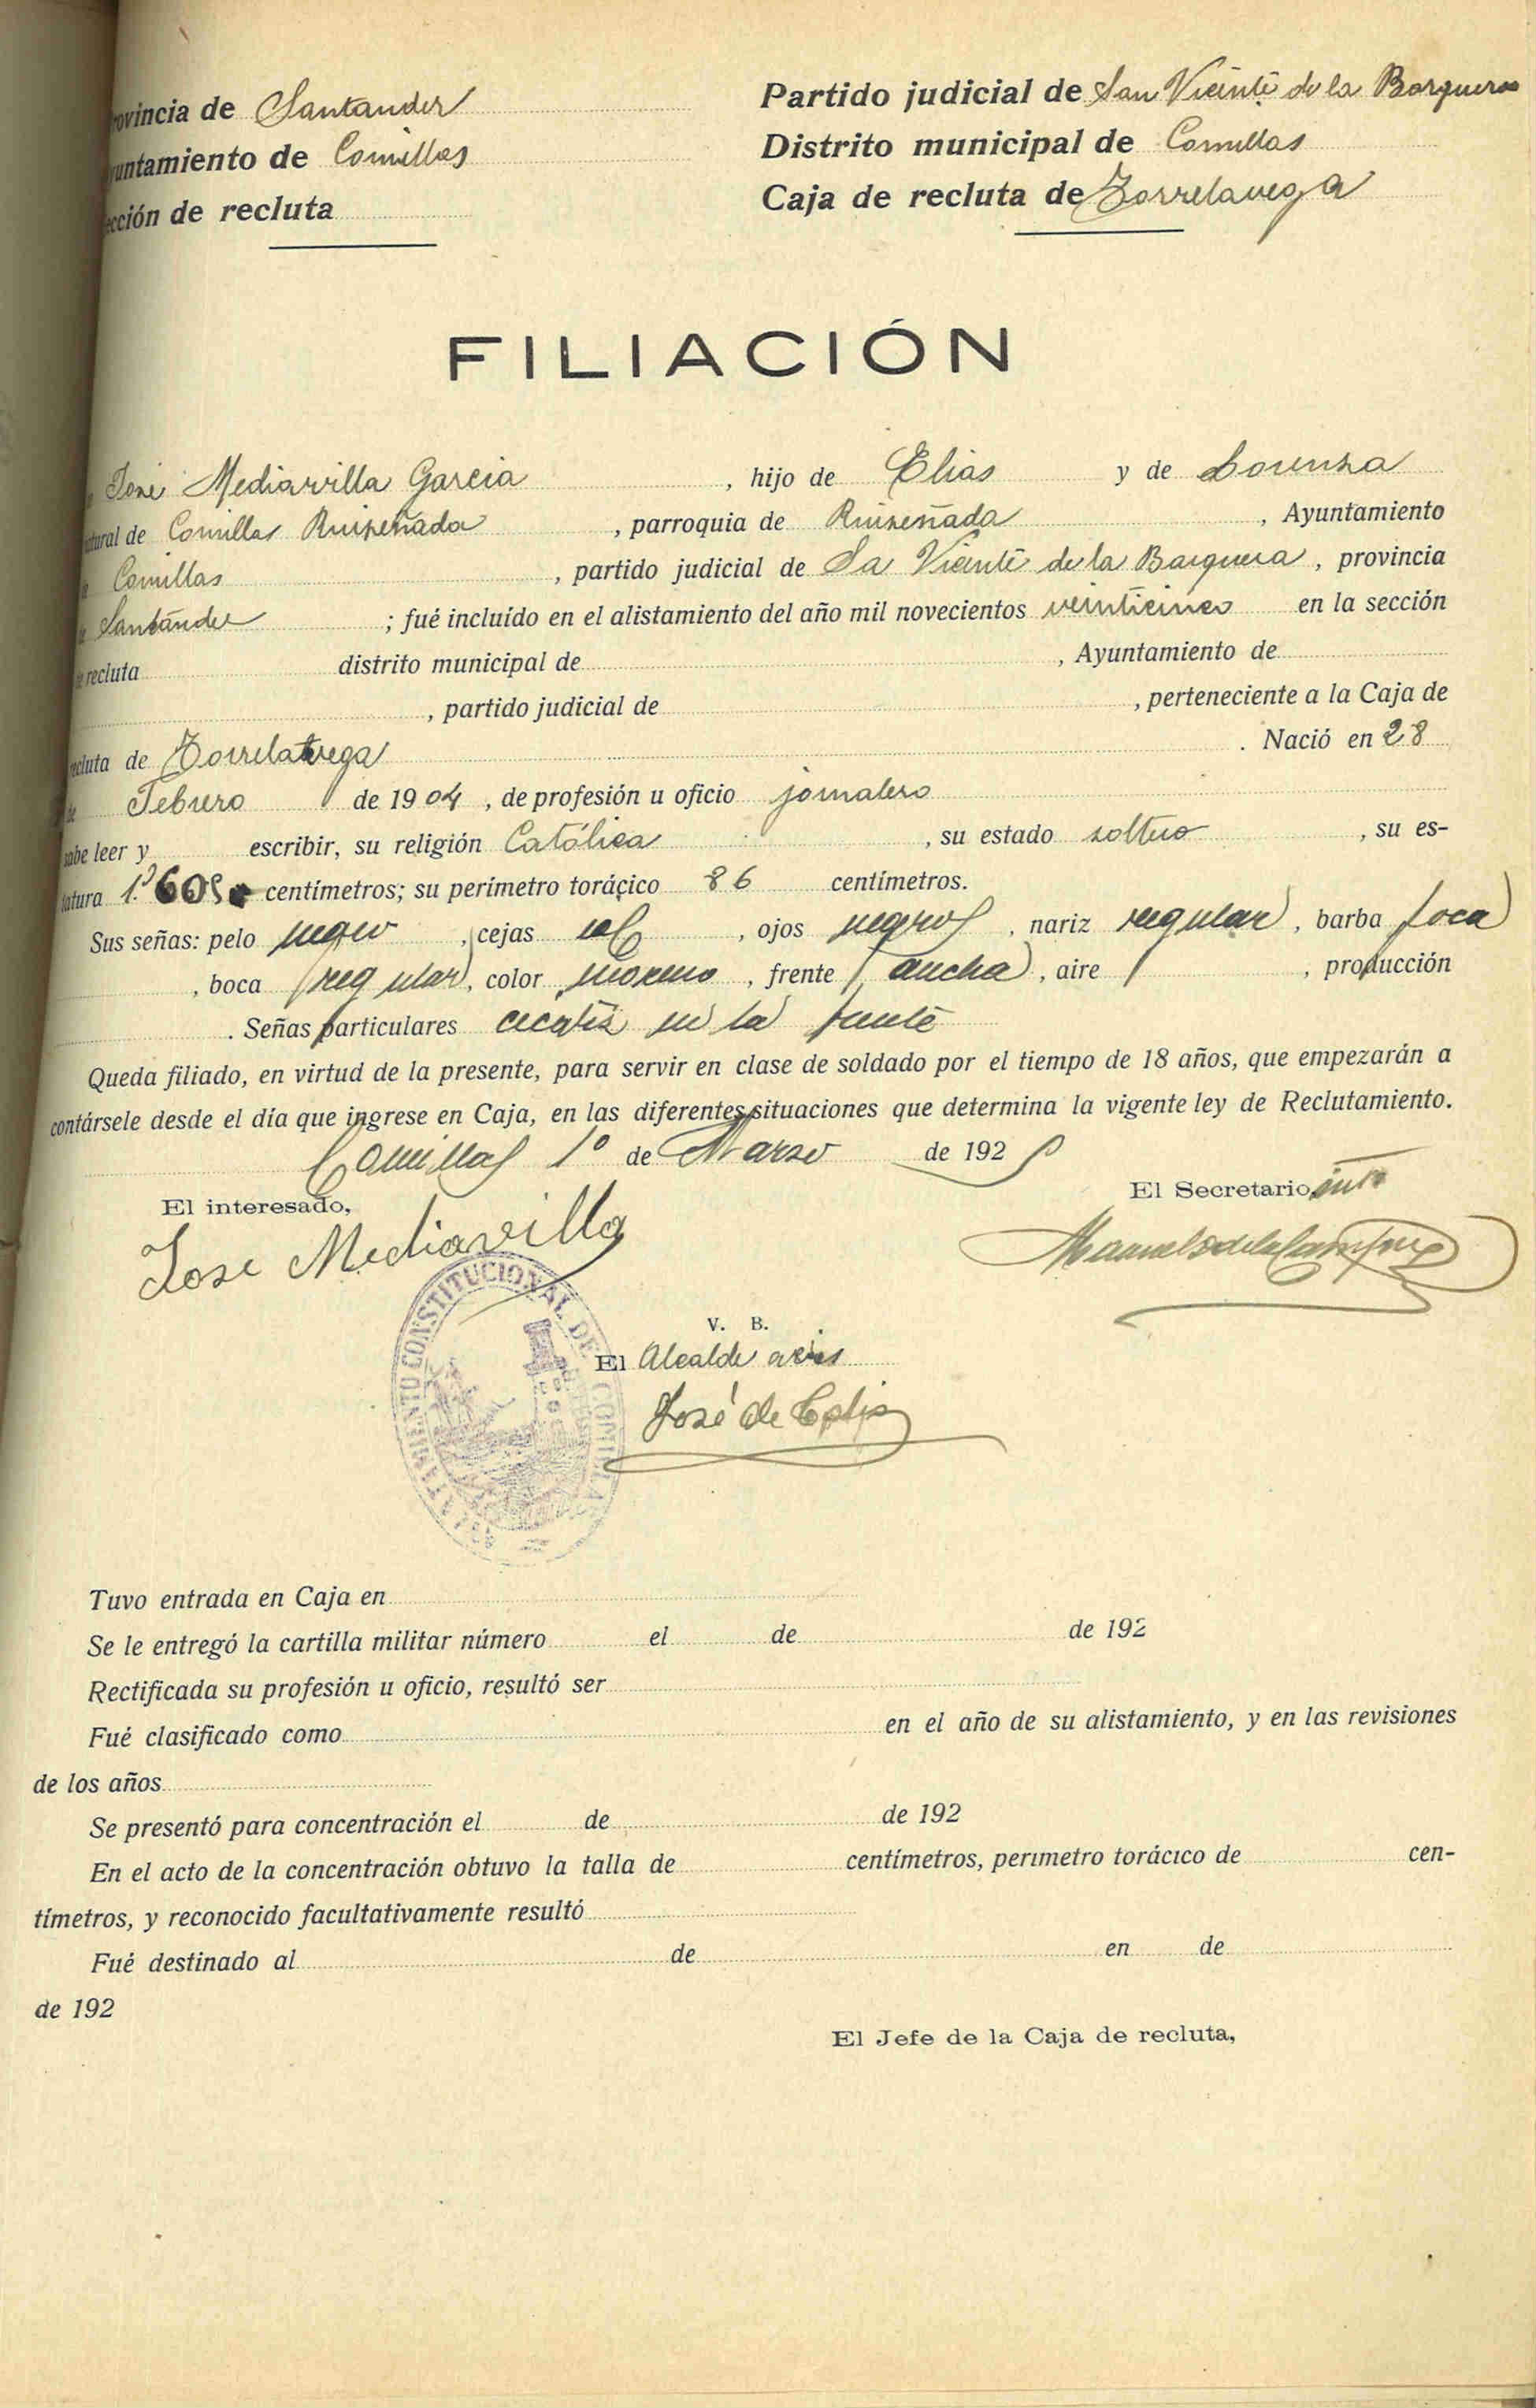 ovincia de Santander
Partido judicial de San Vicente de la Barquera
untamiento de Comillas
Distrito municipal de Comillas
cción de recluta
Caja de recluta de Torrelavega
FILIACIÓN
José Mediavilla Garcia, hijo de Elias y de Lorenza
tural de Comillas Ruiseñada, parroquia de Ruiseñada, Ayuntamiento
e Comillas, partido judicial de Sa Vicente de la Barquera, provincia
e Santander; fué incluído en el alistamiento del año mil novecientos veinticinco en la sección
e recluta distrito municipal de, Ayuntamiento de
, partido judicial de, perteneciente a la Caja de
ecluta de Torrelavega. Nació en 28
de Febrero de 1904, de profesión u oficio jornalero
sabe leer y escribir, su religión Católica, su estado soltero, su es-
tatura centímetros; su perímetro torácico 86 centímetros.
Sus señas: pelo negro, cejas, ojos negros, nariz regular, barba poca
, boca regular, color moreno, frente ancha, aire, producción
. Señas particulares cicatriz en la frente
Queda filiado, en virtud de la presente, para servir en clase de soldado por el tiempo de 18 años, que empezarán a
contársele desde el día que ingrese en Caja, en las diferentes situaciones que determina la vigente ley de Reclutamiento.
Comillas 1º de Marzo de 1925
El interesado,
El Secretario intº
Jose Mediavilla
V. B.
El Alcalde
José de Celis
AYUNTAMIENTO CONSTITUCIONAL DE COMILLAS
Tuvo entrada en Caja en
Se le entregó la cartilla militar número el de de 192
Rectificada su profesión u oficio, resultó ser
Fué clasificado como en el año de su alistamiento, y en las revisiones
de los años
Se presentó para concentración el de de 192
En el acto de la concentración obtuvo la talla de centímetros, perímetro torácico de cen-
tímetros, y reconocido facultativamente resultó
Fué destinado al de en de
de 192
El Jefe de la Caja de recluta,